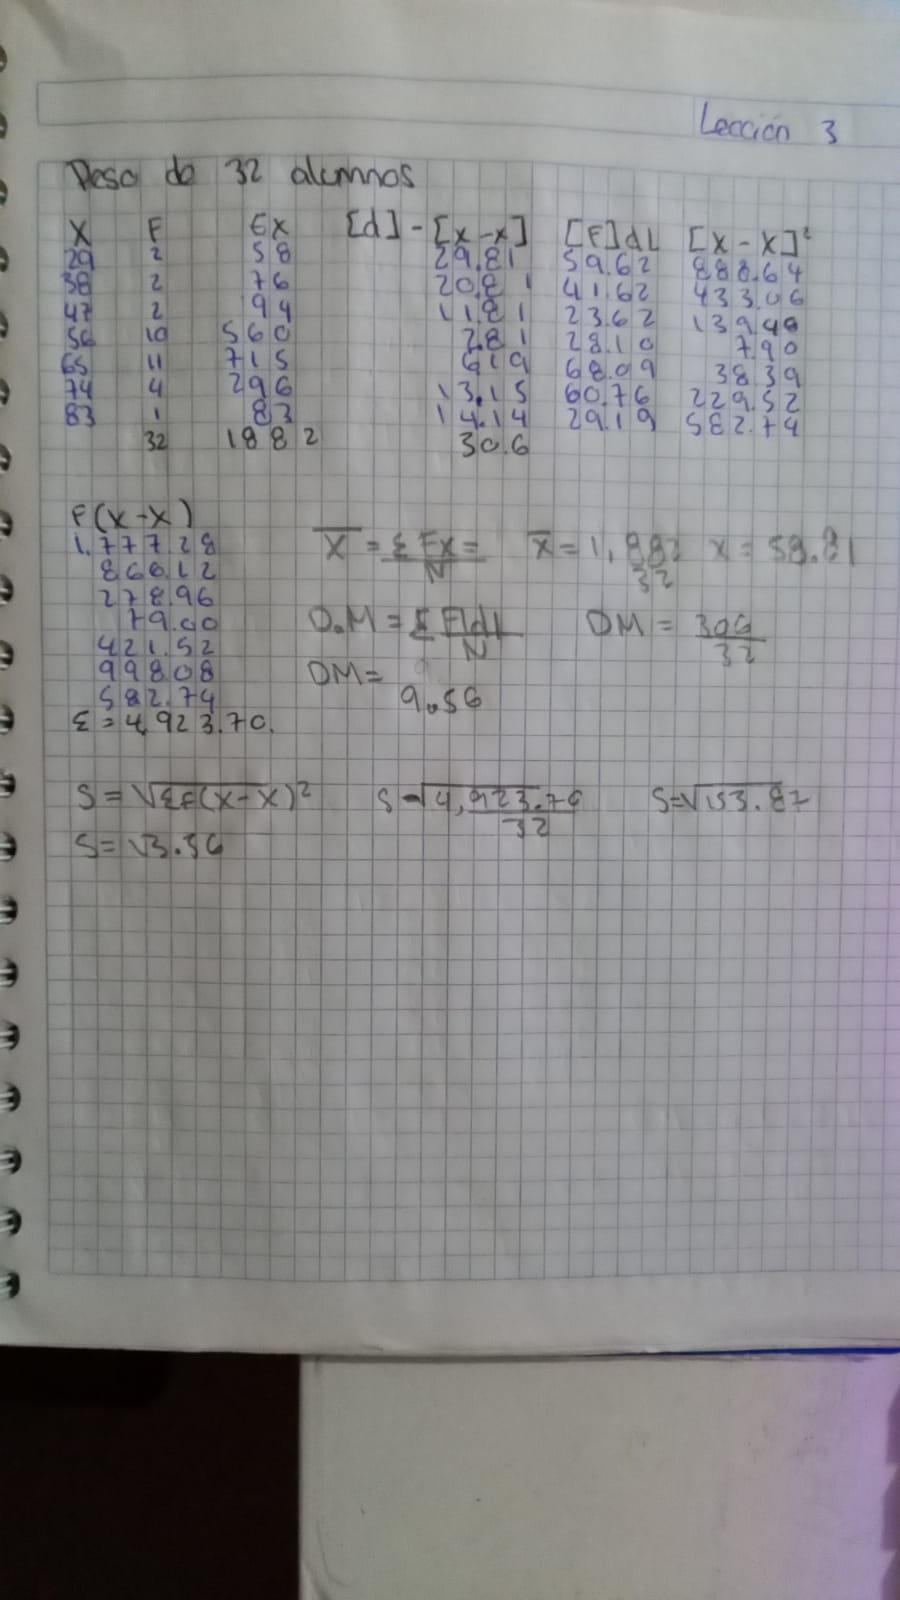 Lección 3
Peso de 32 alumnos
X F Ex [d] - [x - x] [F]dL [x - x]²
29 2 58 29.81 59.62 888.64
38 2 76 20.81 41.62 433.06
47 2 94 11.81 23.62 139.48
56 10 560 2.81 28.10 7.90
65 11 715 6.19 68.09 38.39
74 4 296 13.15 60.76 229.52
83 1 83 14.14 29.19 582.74
32 1882 30.6
F(x-x)
1.777.28
866.12
278.96
79.00
421.52
998.08
582.74
Σ = 4,923.70.
X = ΣFx = / N x = 1,882 / 32 x = 58.81
D.M = Σ F|d| / N DM = 306 / 32
DM = 9.56
S = √ΣF(x-x)² S = √4,923.70 / 32 S = √153.87
S = √3.56